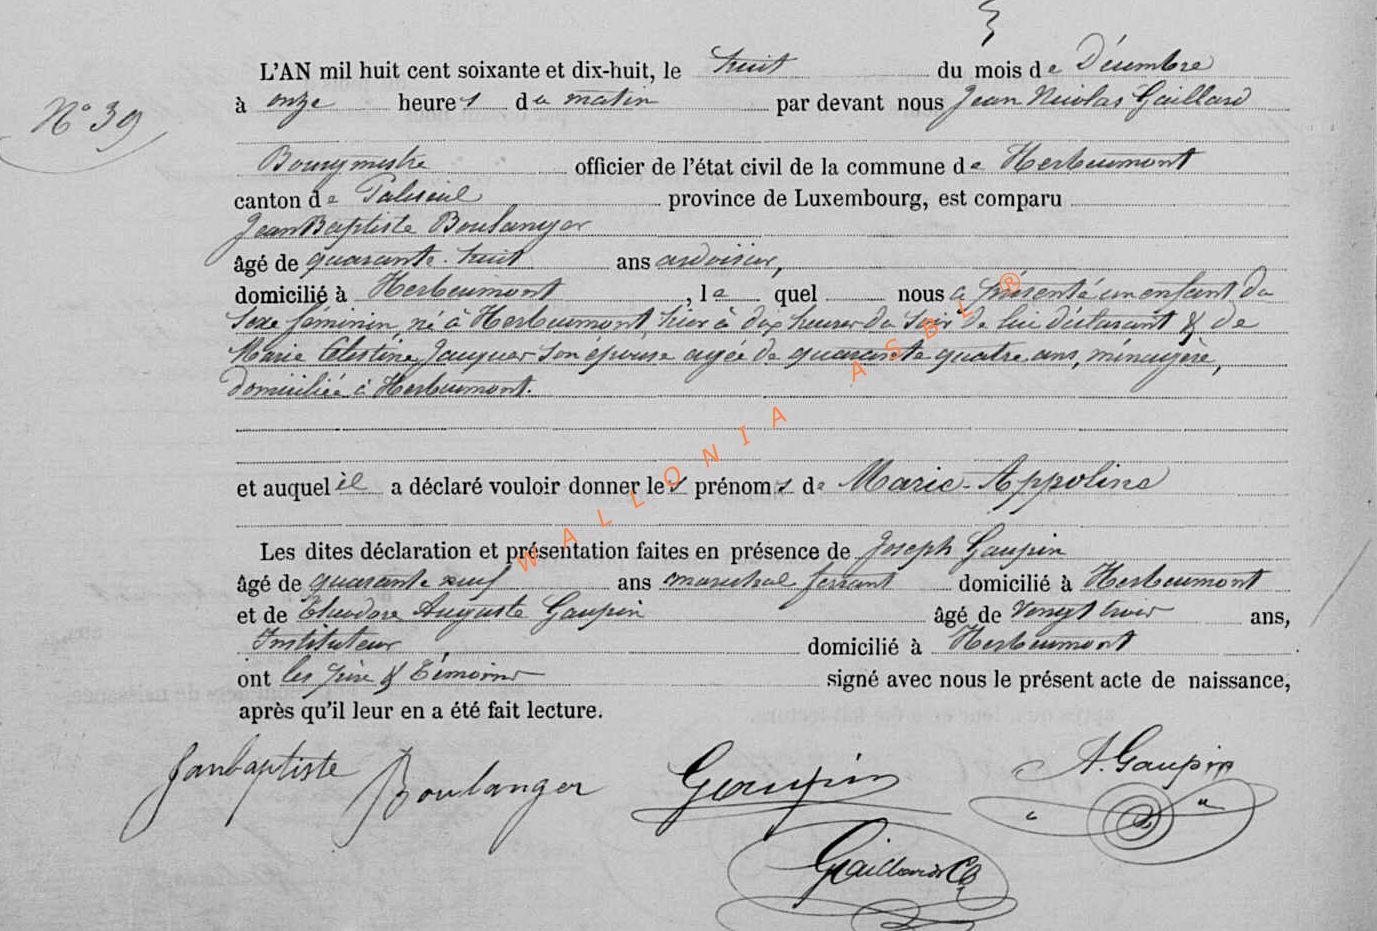 L'AN mil huit cent soixante et dix-huit, le huit du mois de Décembre
N° 39
à onze heures du matin par devant nous Jean Nicolas Gaillard
Bourgmestre officier de l'état civil de la commune de Herbeumont
canton de Paliseul province de Luxembourg, est comparu
Jean Baptiste Boulanger
âgé de quarante-huit ans ardoisier,
domicilié à Herbeumont, lequel nous a présenté un enfant du
sexe féminin, né à Herbeumont, hier à dix heures du soir de lui déclarant & de
Marie Celestine Jacques son épouse agée de quarante quatre ans, ménagère,
domiciliée à Herbeumont.
et auquel il a déclaré vouloir donner les prénoms de Marie-Appoline
Les dites déclaration et présentation faites en présence de Joseph Gaupin
âgé de quarante neuf ans maréchal ferrant domicilié à Herbeumont
et de Théodore Auguste Gaupin âgé de vingt trois ans,
Instituteur domicilié à Herbeumont
ont les père & témoins signé avec nous le présent acte de naissance,
après qu'il leur en a été fait lecture.
Janbaptiste Boulanger Gaupin A. Gaupin
Gaillard
WALLONIA ASBL ®